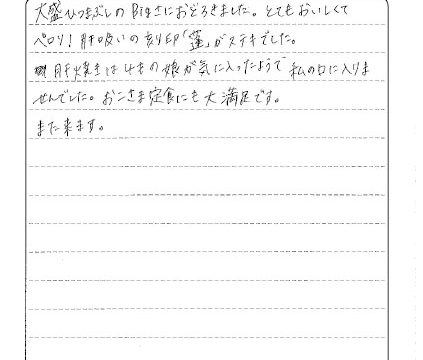 大盛ひつまぶしのBigさにおどろきました。とてもおいしくて
ペロリ！肝吸いの刻印「蓬」がステキでした。
肝焼きは4才の娘が気に入ったようで私の口に入りま
せんでした。おこさま定食にも大満足です。
また来ます。